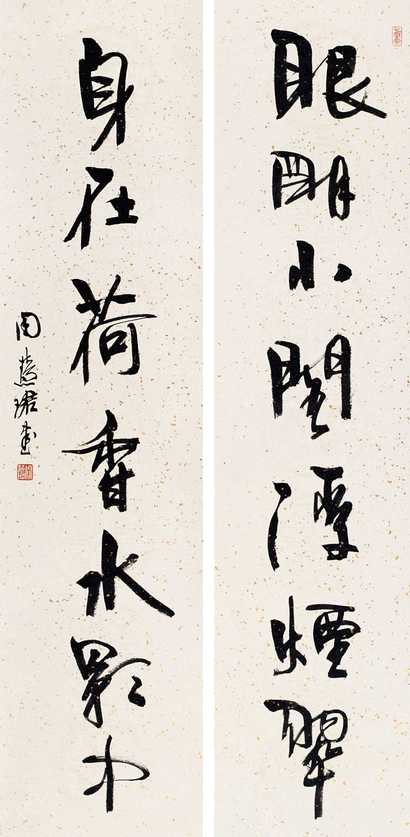 眼明小閣浮煙翠
身在荷香水影中
周慧珺書